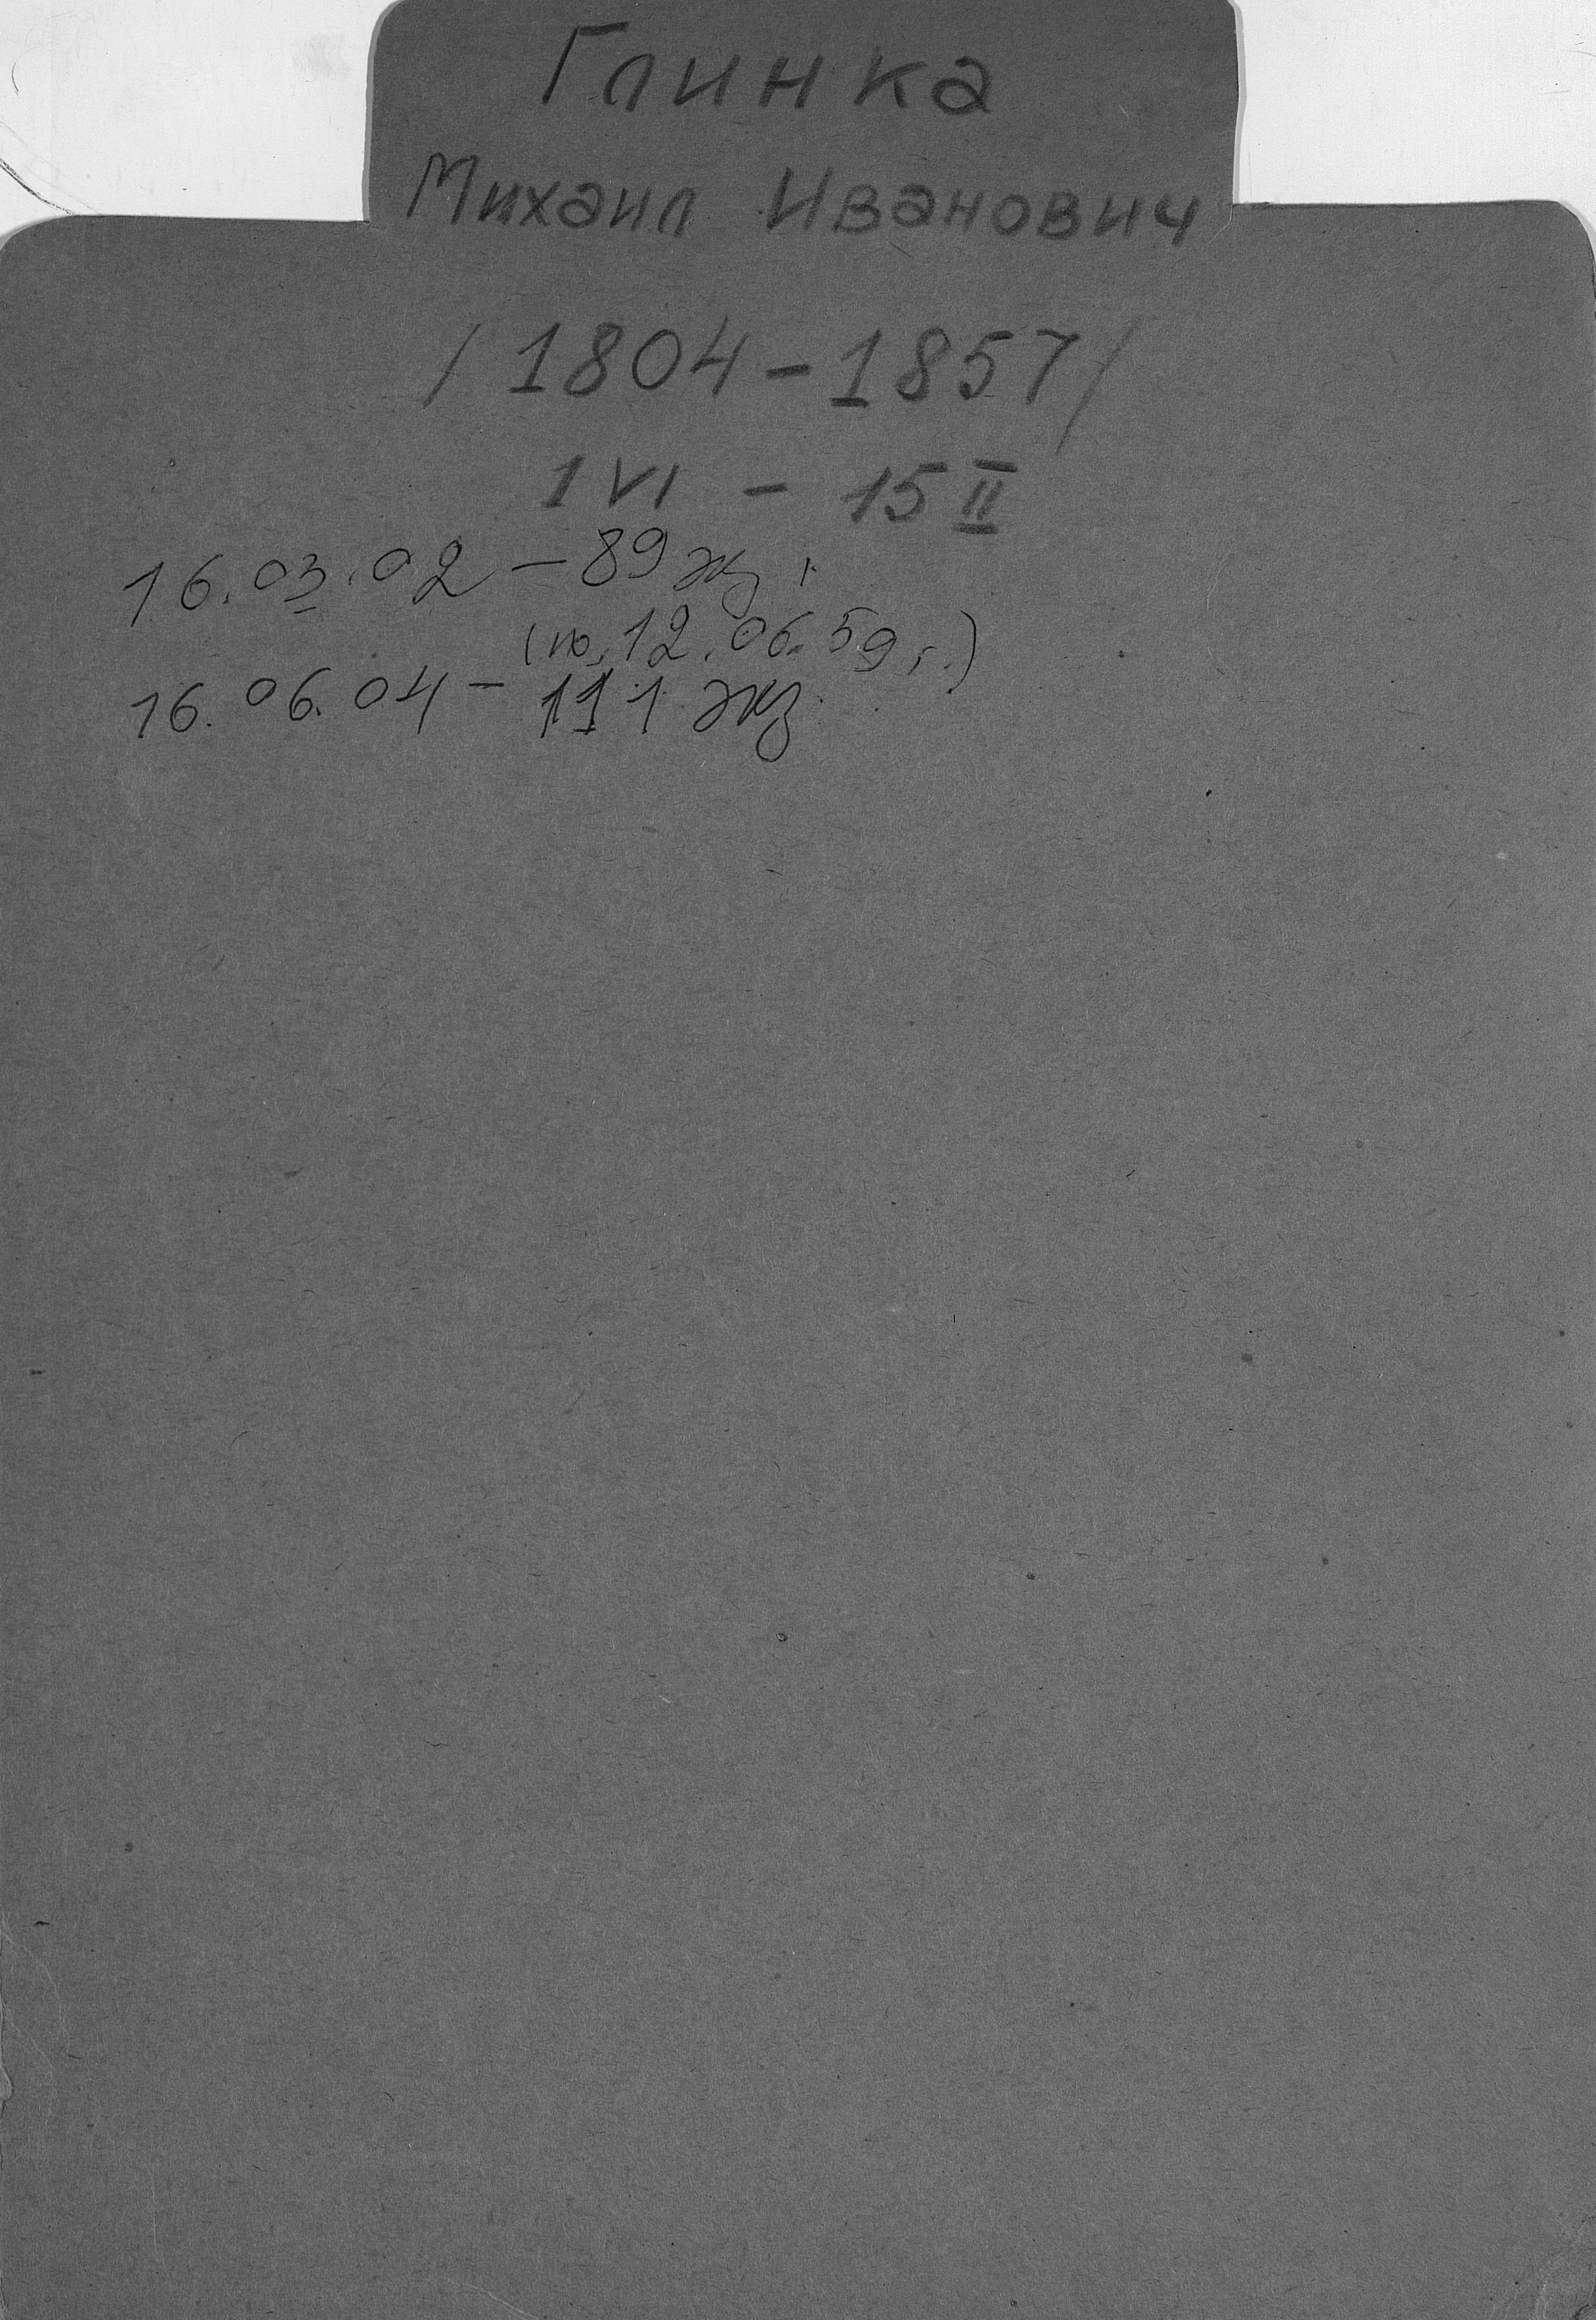 Глинка
Михаил Иванович
/1804-1857/
1 VI - 15 II
16.03.02 - 89 экз.
(по 12.06.59 г.)
16.06.04 - 111 экз.